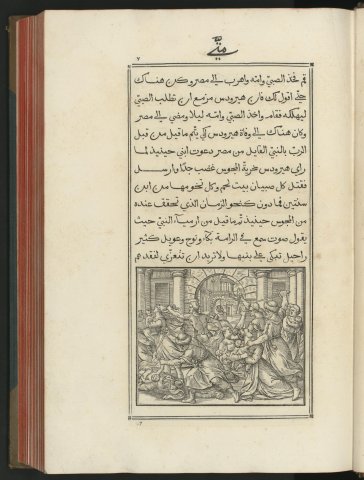 متى
٧
قم فخذ الصبي وامه واهرب الى مصر وكن هناك
حتى اقول لك فان هيرودس مزمع ان تطلب الصبي
ليهلكه فقام واخذ الصبي وامه ليلا ومضي الى مصر
وكان هناك الى وفاة هيرودس لكي يتم ما قيل من قبل
الرب بالنبي القايل من مصر دعوت ابني حينيذ لما
راي هيرودس سخرية المجوس غضب جدا وارسل
فقتل كل صبيان بيت لحم وكل تخومها من ابن
سنتين فما دون كنحو الزمان الذي تحقق عنده
من المجوس حينيذ تم ما قيل من ارميا النبي حيث
يقول صوت سمع في الرامة بكاء ونوح وعويل كثير
راحيل تبكي على بنيها ولا تريد ان تتعزي لفقدهم